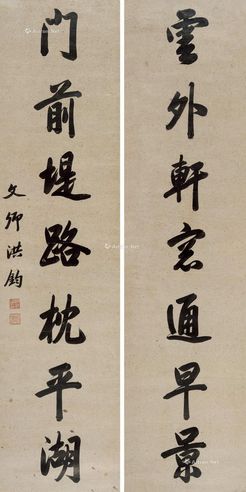 雲外軒窓通早景
門前堤路枕平湖
文卿洪鈞